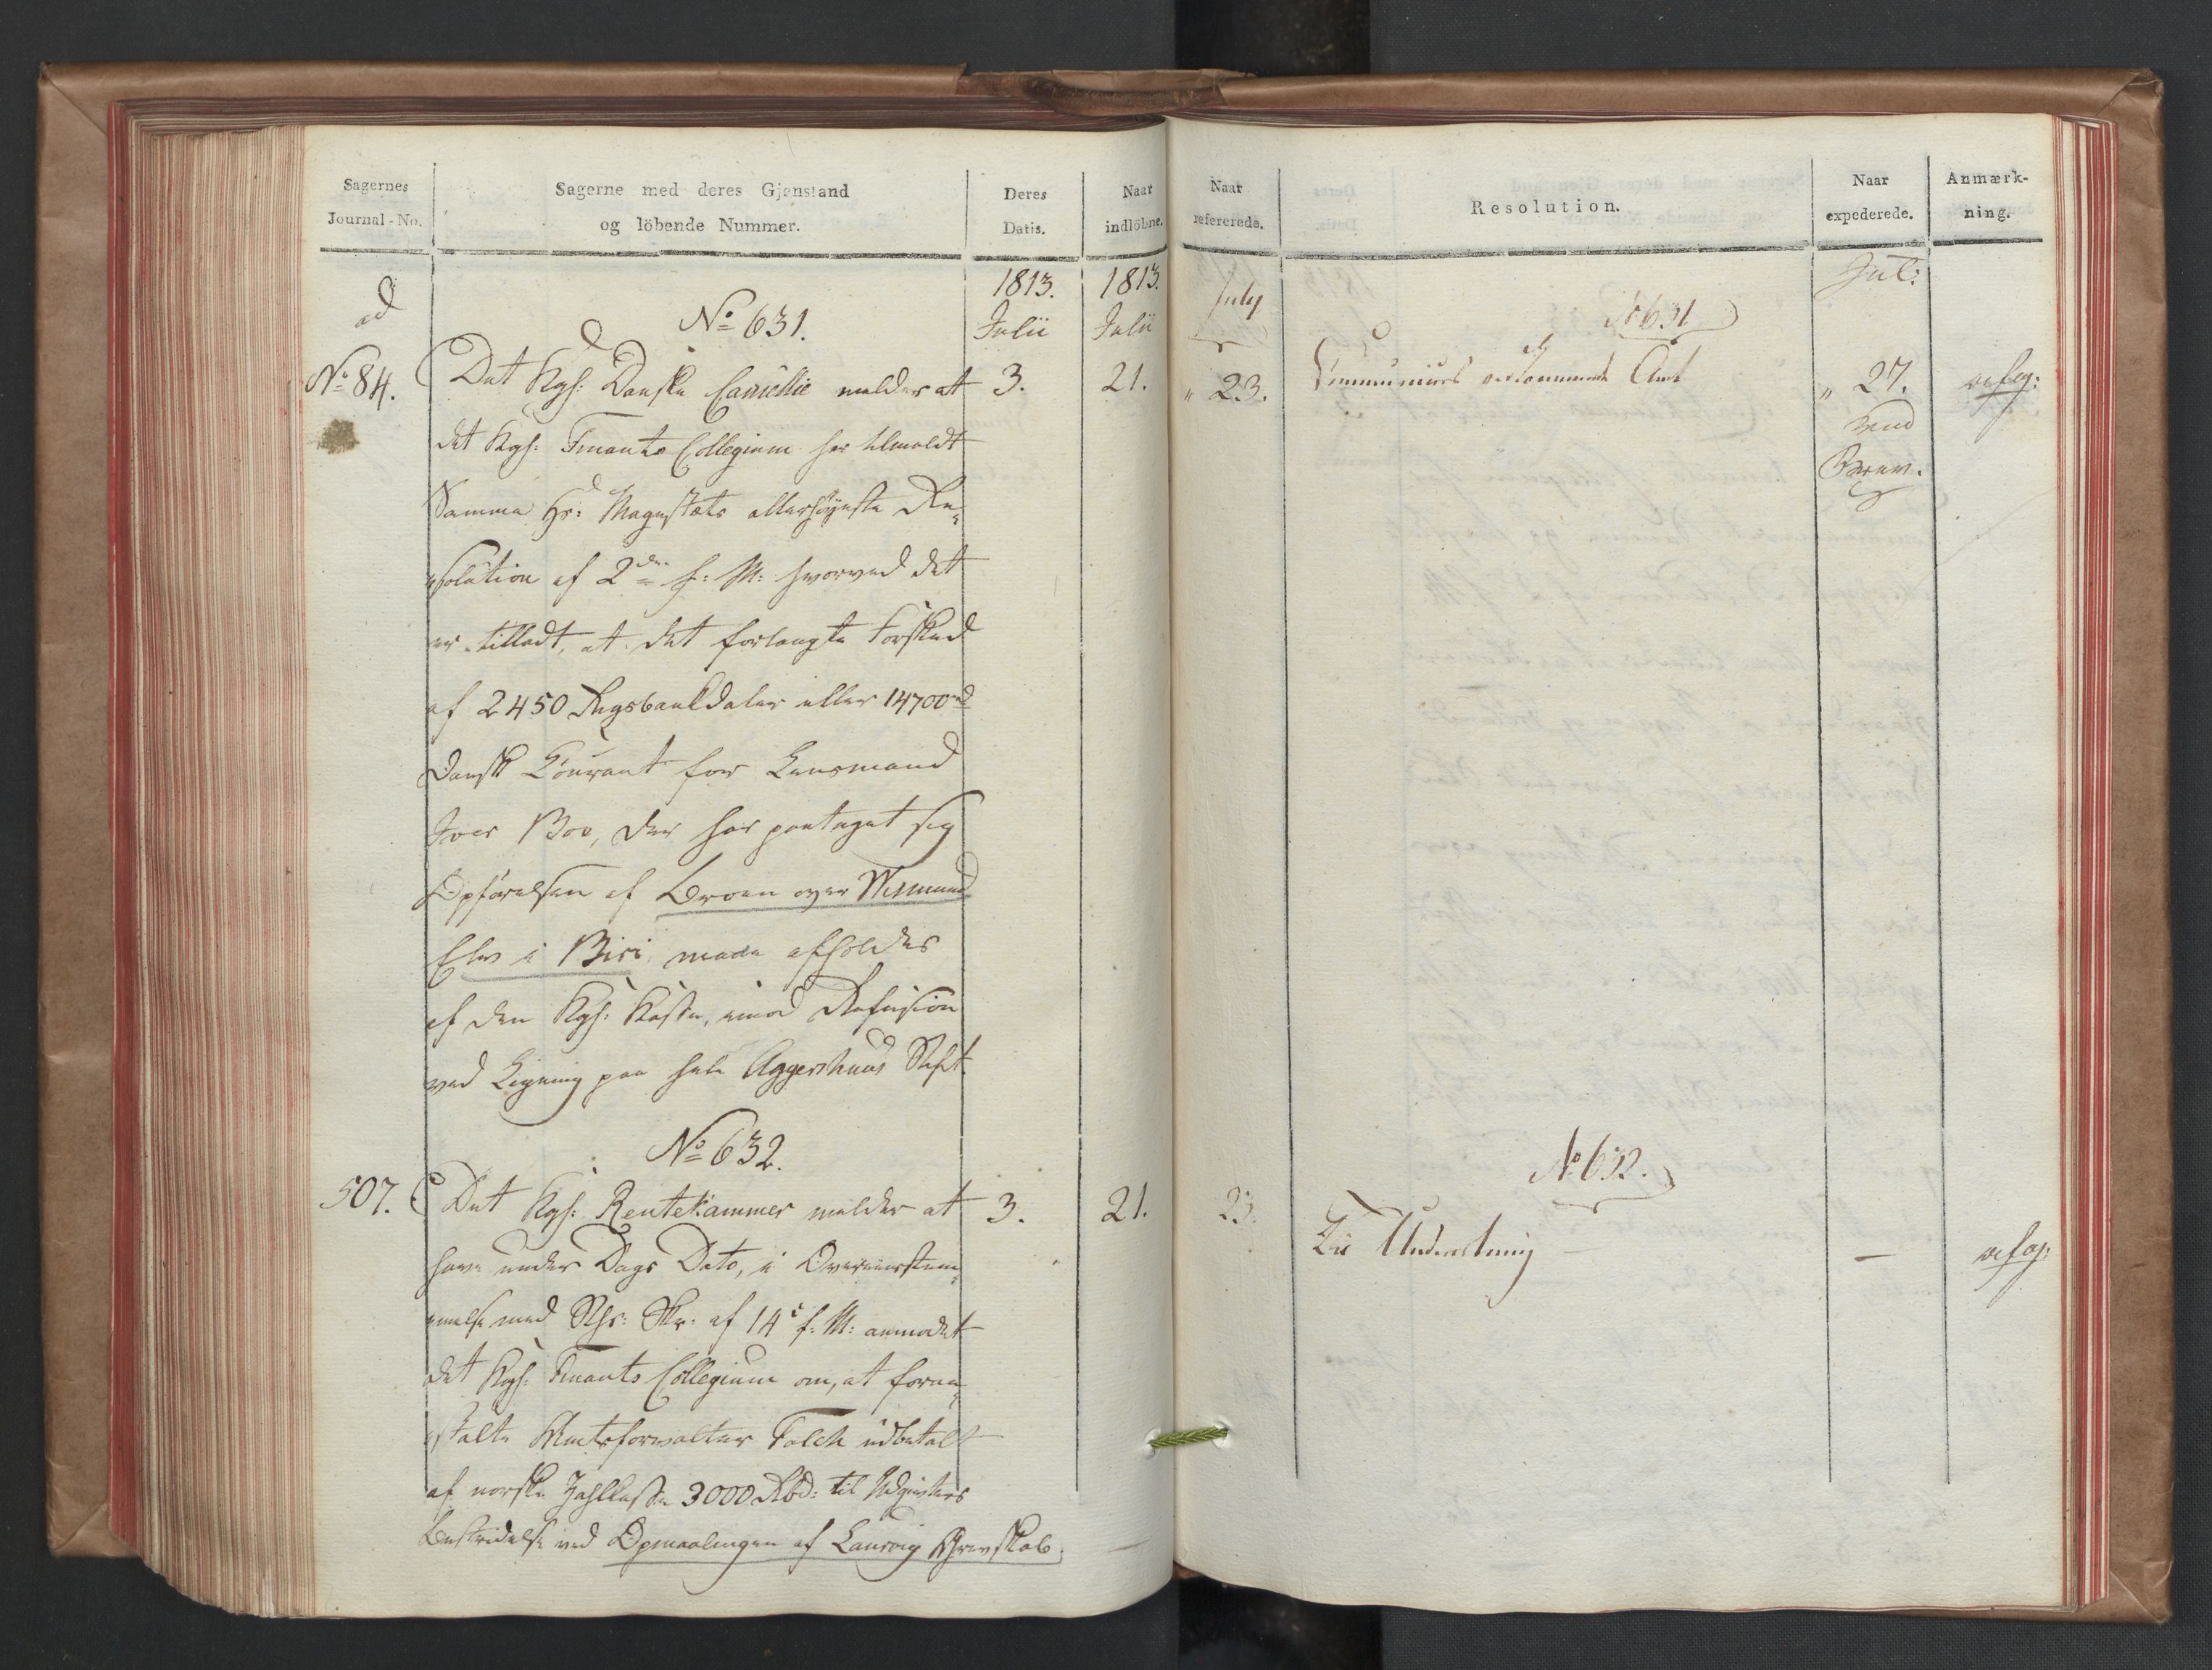 Sagernes
Journal-No.
Sagerne med deres Gjenstand
og löbende Nummer.
Deres
Datis.
Naar
indlöbne.
ad
No 84.
1813.
Julii
1813.
Julii
No 631.
Det Kgl: Danske Cancellie melder at
3.
21.
det Kgl: Finants Collegium har tilmeldt
Samme Hs: Majestæts allerhöyeste Re-
solution af 2den f: M: hvorved det
er tilladt, at det forlangte Forskud
af 2450 Rigsbankdaler eller 14700 rd
Dansk Courant for Lensmand
Iver Boe, der har paataget sig
Opförelsen af Broen over Wismund
Elv i Biri, maae afholdes
af den Kgl: Kasse, imod Refusion
ved Ligning paa hele Aggershuus Stift.
No 632.
507.
Det Kgl: Rentekammer melder at
3.
21.
have under Dags Dato, i Overeensstem-
melse med Skr: af 14e f: M: anmodet
det Kgl: Finants Collegium om, at foran-
stalte Amtsforvalter Falch udbetalt
af norske Zahlkasse 3000 Rbd: til Udgivters
Bestridelse ved Opmaalingen af Laurvig Grevskab.
Naar
refererede.
Resolution.
Naar
expederede.
Anmærk-
ning.
July
Jul:
No 631.
" 23.
Communiceres vedkommende Amt
" 27.
No 632.
23.
Til Underretning
—